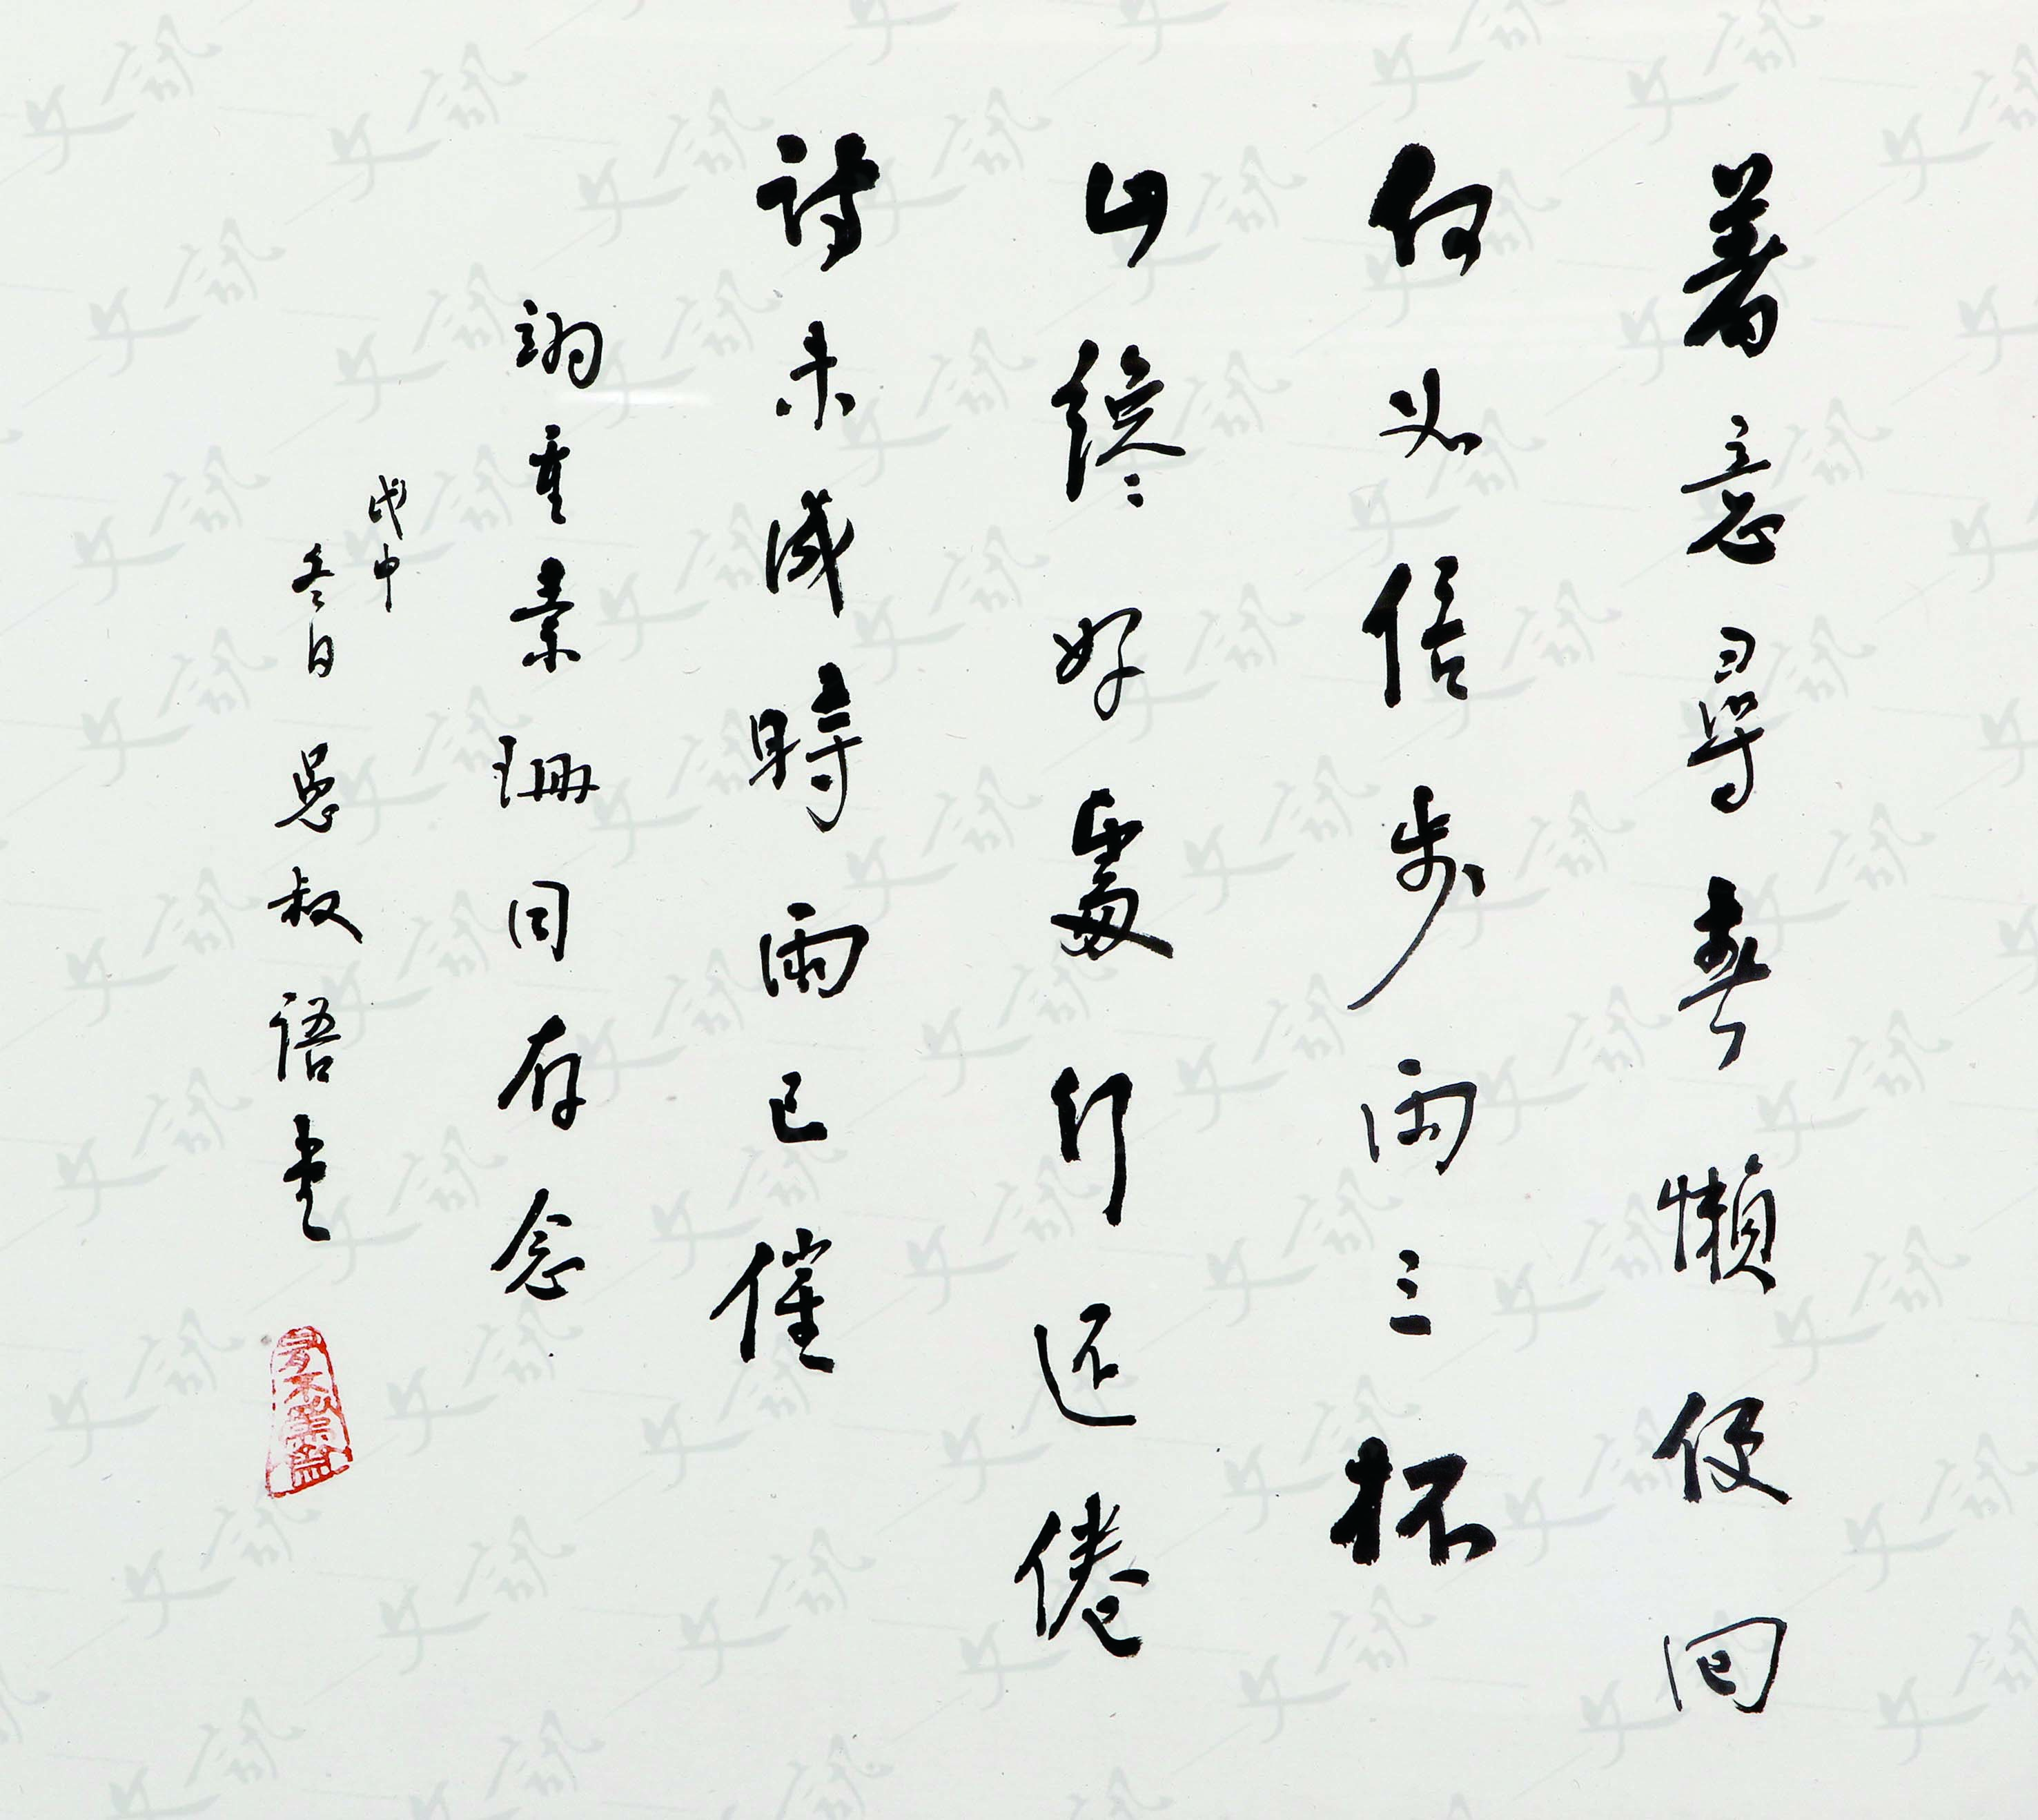 著意尋春懶便回
何如信步兩三杯
山纔好處行還倦
詩未成時雨已催
翊重素珊同存念
戊申
冬日愚叔語堂